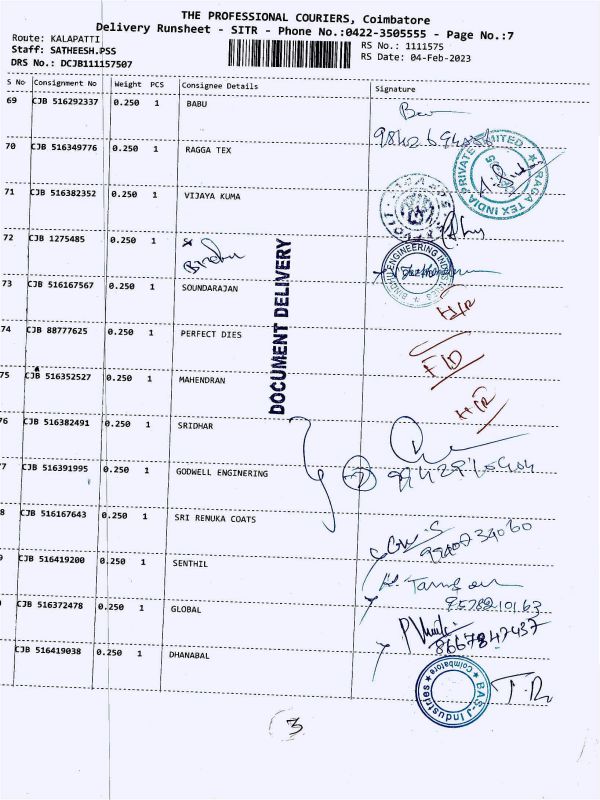 THE PROFESSIONAL COURIERS, Coimbatore
Delivery Runsheet - SITR - Phone No.:0422-3505555 - Page No.:7
Route: KALAPATTI
Staff: SATHEESH.PSS
DRS No.: DCJB111157507
RS No.: 1111575
RS Date: 04-Feb-2023
S No Consignment No Weight PCS Consignee Details Signature
69 CJB 516292337 0.250 1 BABU
70 CJB 516349776 0.250 1 RAGGA TEX
RAGA TEX INDIA PRIVATE LIMITED
71 CJB 516382352 0.250 1 VIJAYA KUMA
72 CJB 1275485 0.250 1 Bindhu
BINDHU ENGINEERING INDUSTRIES
DOCUMENT DELIVERY
73 CJB 516167567 0.250 1 SOUNDARAJAN
74 CJB 88777625 0.250 1 PERFECT DIES
75 CJB 516352527 0.250 1 MAHENDRAN
76 CJB 516382491 0.250 1 SRIDHAR
77 CJB 516391995 0.250 1 GODWELL ENGINERING
8 CJB 516167643 0.250 1 SRI RENUKA COATS
CJB 516419200 0.250 1 SENTHIL
9578210163
CJB 516372478 0.250 1 GLOBAL
8667842437
CJB 516419038 0.250 1 DHANABAL
BAS-J Industries Coimbatore
3